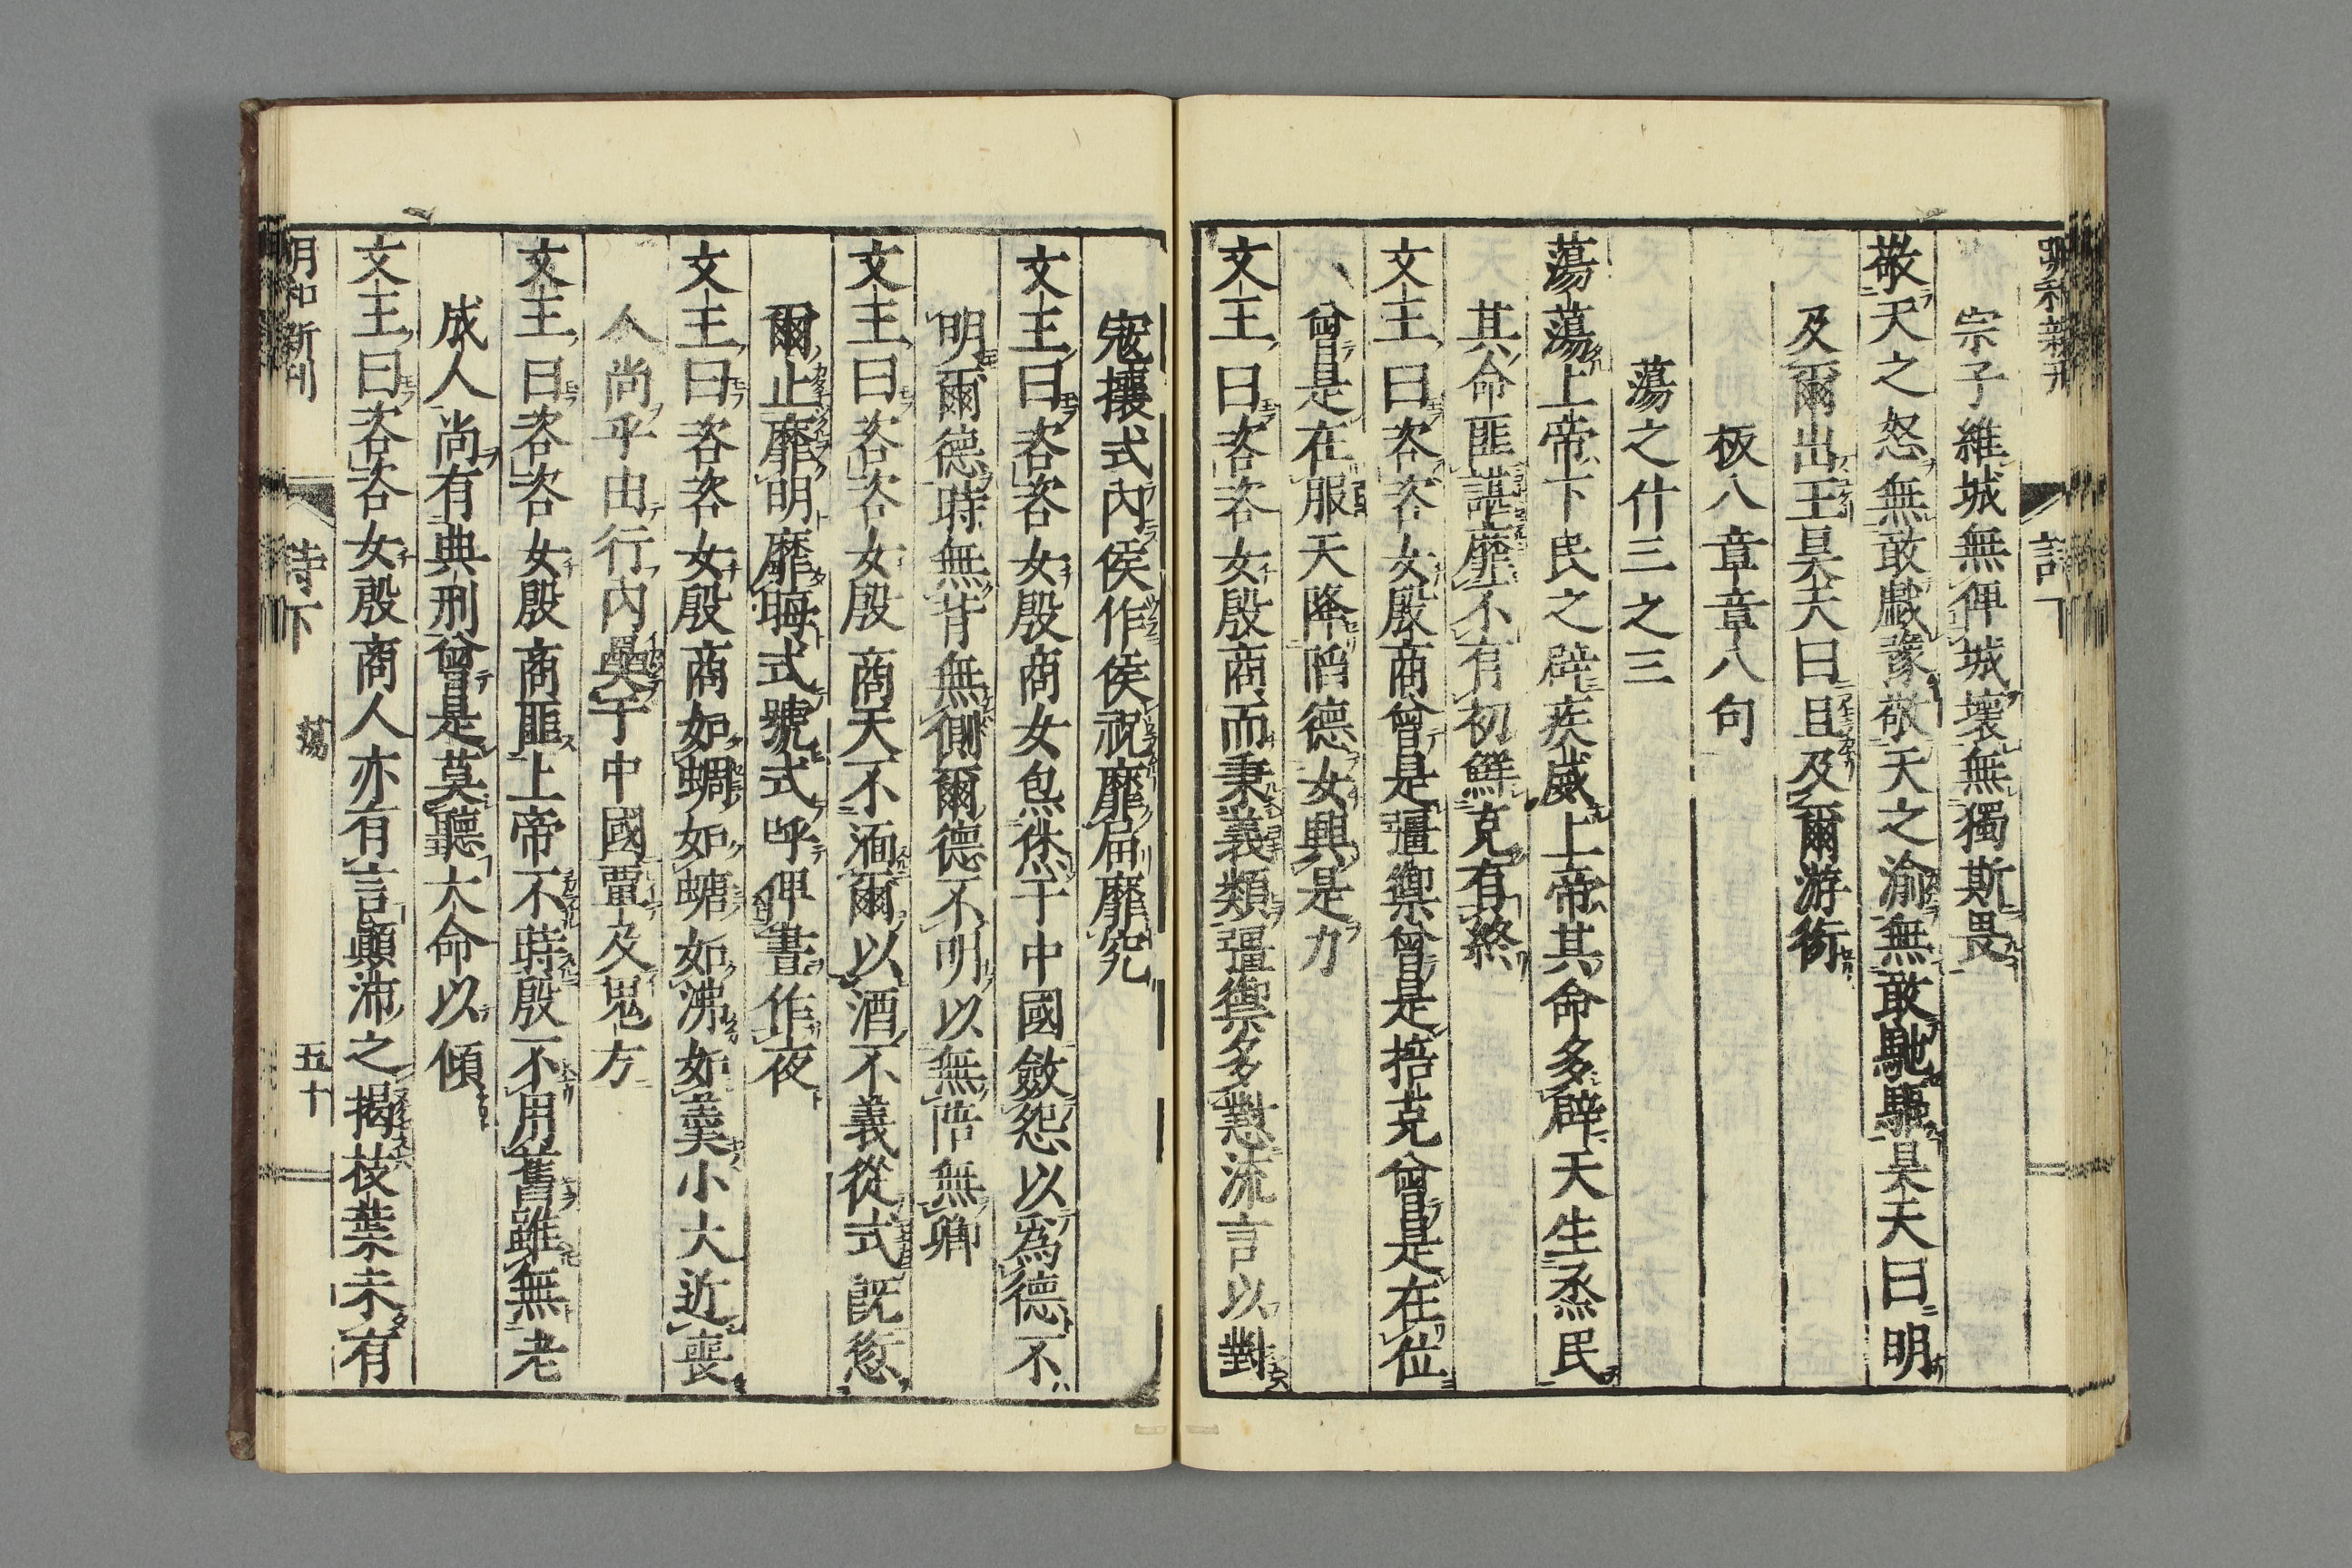 宗子維城無俾城壞無獨斯畏
敬天之怒無敢戲豫敬天之渝無敢馳驅昊天曰明
及爾出王昊天曰且及爾游衍
板八章章八句
蕩之什三之三
蕩蕩上帝下民之辟疾威上帝其命多辟天生烝民
其命匪諶靡不有初鮮克有終
文王曰咨咨女殷商曾是彊禦曾是掊克曾是在位
曾是在服天降慆德女興是力
文王曰咨咨女殷商而秉義類彊禦多懟流言以對
寇攘式內侯作侯祝靡屆靡究
文王曰咨咨女殷商女炰烋于中國斂怨以爲德不
明爾德時無背無側爾德不明以無陪無卿
文王曰咨咨女殷商天不湎爾以酒不義從式既愆
爾止靡明靡晦式號式呼俾晝作夜
文王曰咨咨女殷商如蜩如螗如沸如羹小大近喪
人尚乎由行內奰于中國覃及鬼方
文王曰咨咨女殷商匪上帝不時殷不用舊雖無老
成人尚有典刑曾是莫聽大命以傾
文王曰咨咨女殷商人亦有言顚沛之揭枝葉未有
明和新刊 詩下 蕩 五十